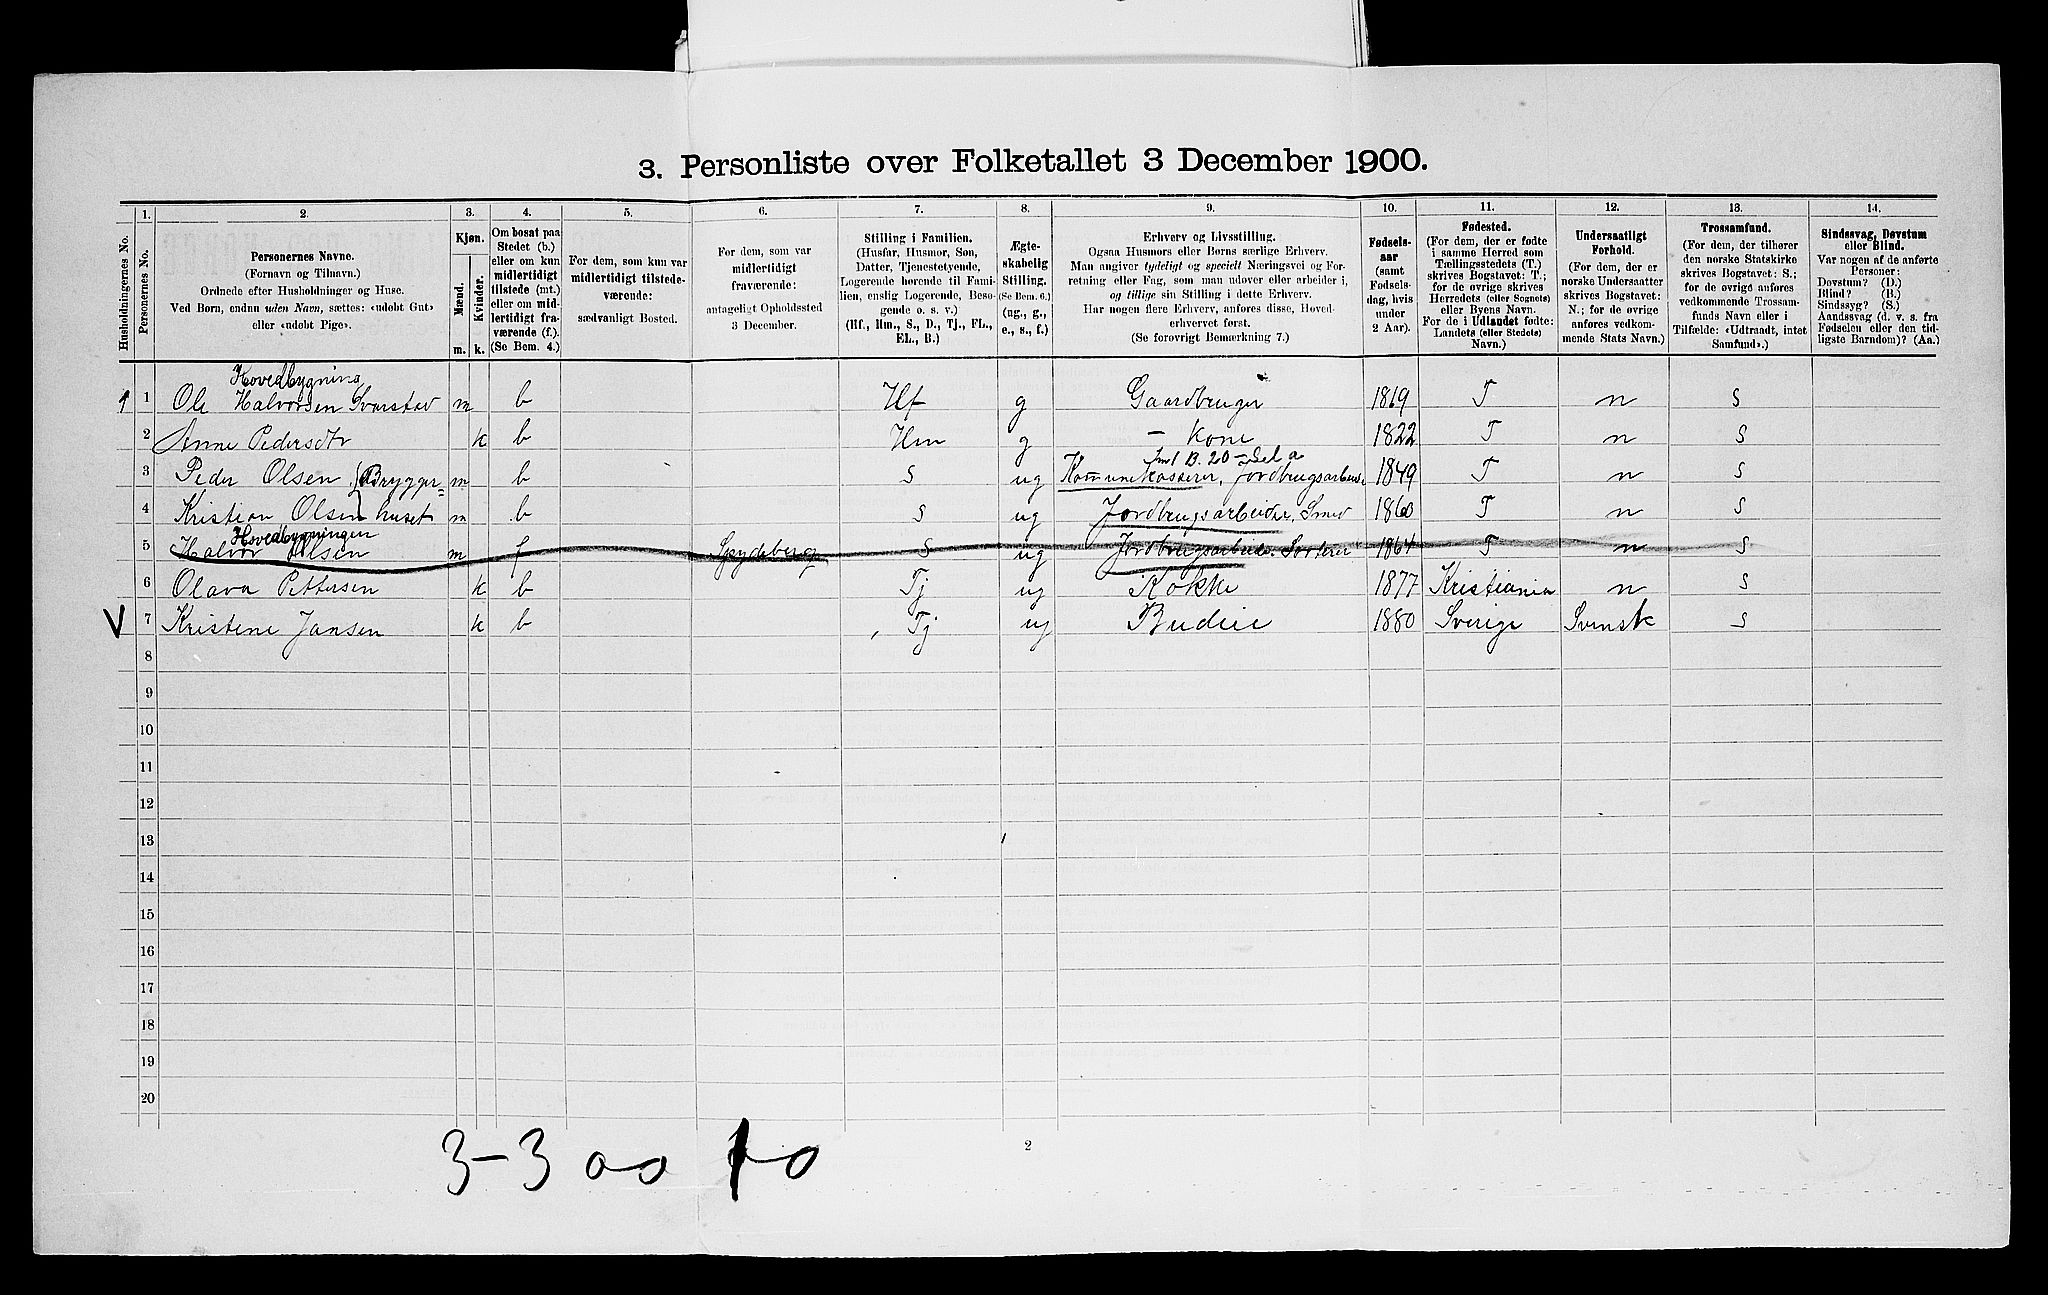 3. Personliste over Folketallet 3 December 1900.
Husholdningernes No.
1.
Personernes No.
2.
Personernes Navne.
(Fornavn og Tilnavn.)
Ordnede efter Husholdninger og Huse.
Ved Børn, endnu uden Navn, sættes: «udøbt Gut»
eller «udøbt Pige».
3.
Kjøn.
Mænd.
Kvinder.
m. k.
4.
Om bosat paa
Stedet (b.)
eller om kun
midlertidigt
tilstede (mt.)
eller om mid-
lertidigt fra-
værende (f.).
(Se Bem. 4.)
5.
For dem, som kun var
midlertidigt tilstede-
værende:
sædvanligt Bosted.
6.
For dem, som var
midlertidigt
fraværende:
antageligt Opholdssted
3 December.
7.
Stilling i Familien.
(Husfar, Husmor, Søn,
Datter, Tjenestetyende,
Logerende hørende til Fami-
lien, enslig Logerende, Besø-
gende o. s. v.)
(Hf., Hm., S., D., Tj., FL.,
EL., B.)
8.
Ægte-
skabelig
Stilling.
(Se Bem. 6.)
(ug., g.,
e., s., f.)
9.
Erhverv og Livsstilling.
Ogsaa Husmors eller Børns særlige Erhverv.
Man angiver tydeligt og specielt Næringsvei og For-
retning eller Fag, som man udøver eller arbeider i,
og tillige sin Stilling i dette Erhverv.
Har nogen flere Erhverv, anføres disse, Hoved-
erhvervet først.
(Se forøvrigt Bemærkning 7.)
10.
Fødsels-
aar
(samt
Fødsels-
dag, hvis
under
2 Aar).
11.
Fødested.
(For dem, der er fødte
i samme Herred som
Tællingsstedets (T.)
skrives Bogstavet: T.;
for de øvrige skrives
Herredets (eller Sognets)
eller Byens Navn.
For de i Udlandet fødte:
Landets (eller Stedets)
Navn.)
12.
Undersaatligt
Forhold.
(For dem, der er
norske Undersaatter
skrives Bogstavet:
N.; for de øvrige
anføres vedkom-
mende Stats Navn.)
13.
Trossamfund.
(For dem, der tilhører
den norske Statskirke
skrives Bogstavet: S.;
for de øvrige anføres
vedkommende Trossam-
funds Navn eller i
Tilfælde: «Udtraadt, intet
Samfund».)
14.
Sindssvag, Døvstum
eller Blind.
Var nogen af de anførte
Personer:
Døvstum? (D.)
Blind? (B.)
Sindssyg? (S.)
Aandssvag (d. v. s. fra
Fødselen eller den tid-
ligste Barndom)? (Aa.)
Hovedbygning
1 1 Ole Halvorsen Svarstad m b Hf g Gaardbruger 1819 T n S
2 Anne Pedersdtr k b Hm g – Kone 1822 T n S
3 Peder Olsen } Brygger= m b S ug Kommunekasserer, Jordbrugsarbeide 1849 T n S
4 Kristian Olsen } huset m b S ug Jordbrugsarbeider, Smed 1860 T n S
Hovedbygningen
5 Halvor Olsen m f Spydeberg S ug Jordbrugsarbeide 1864 T n S
6 Olava Pettersen k b Tj ug Kokke 1877 Kristiania n S
V 7 Kristine Jansen k b Tj ug Budeie 1880 Sverige Svensk S
8
9
10
11
12
13
14
15
16
17
18
19
20
2
3–3 00 10